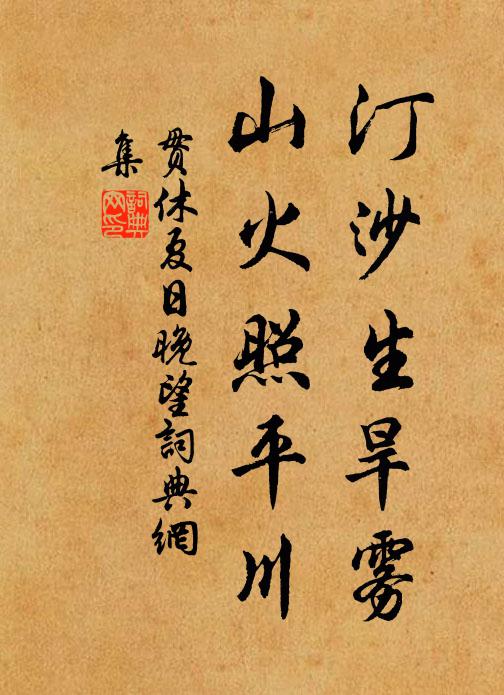 汀沙生旱雾
山火照平川
贯休夏日晚望詞典網
集
詞典网印